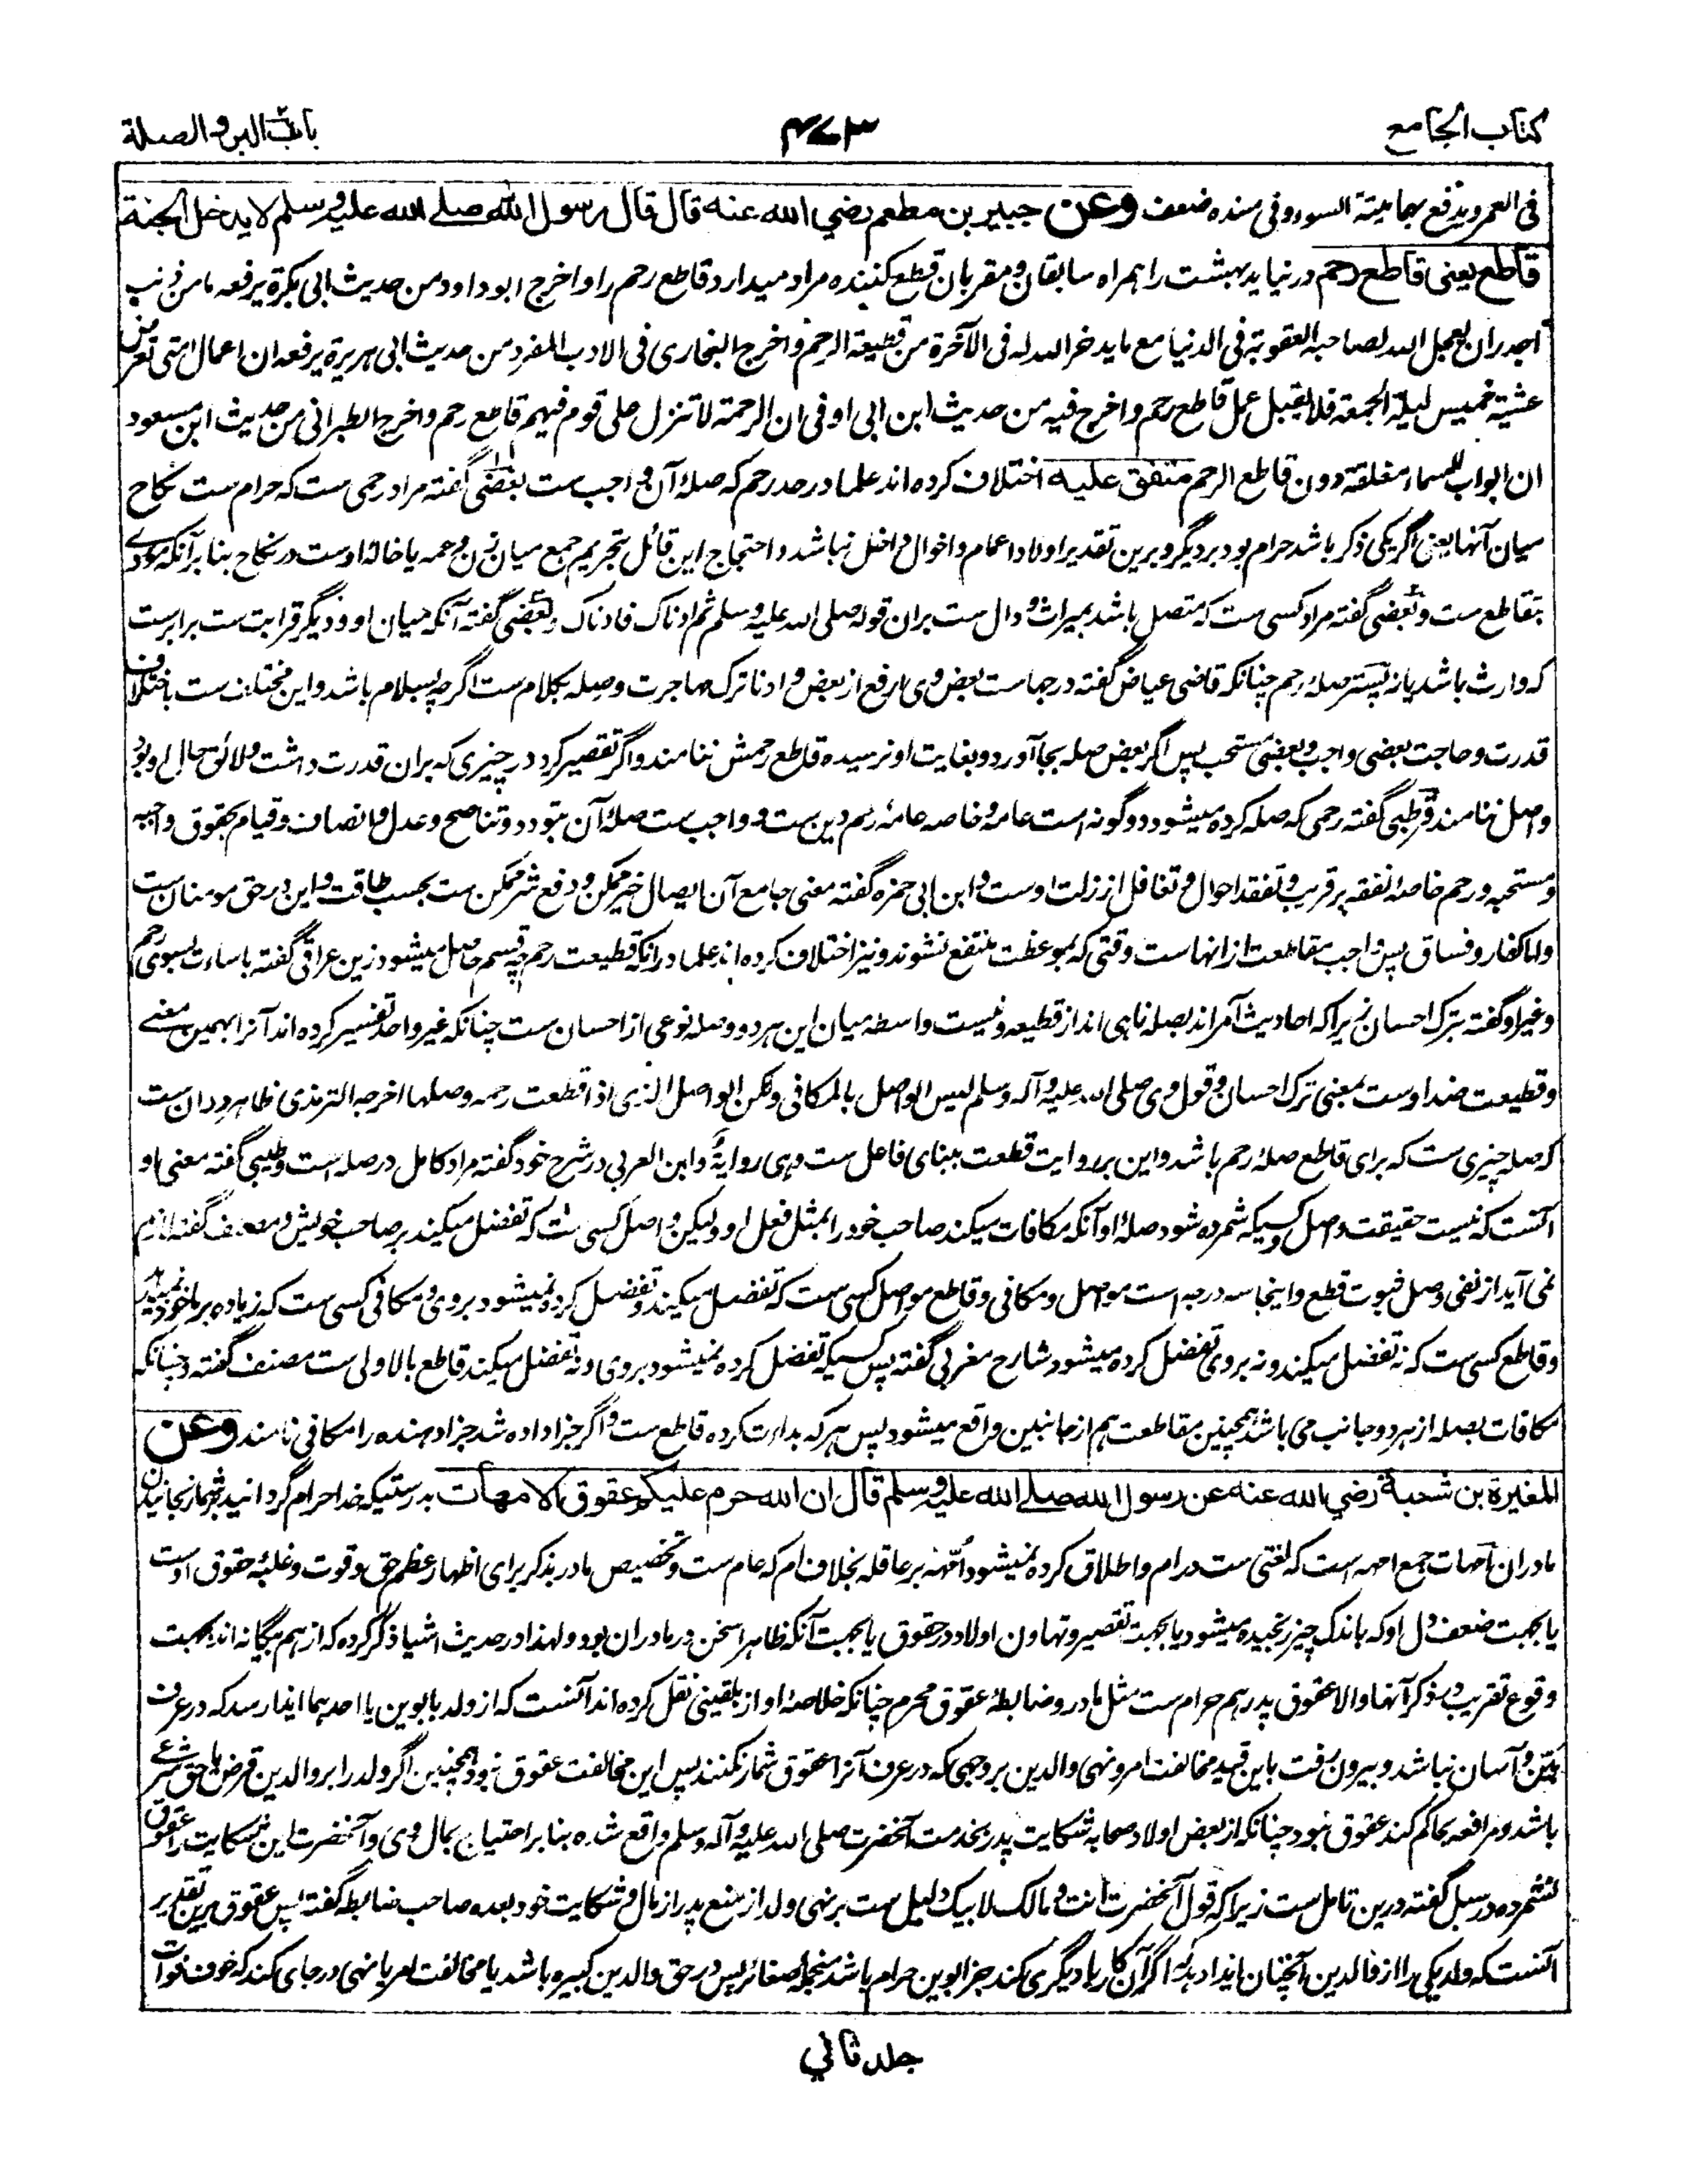 کتاب الجامع
۴۷۳
باب البر والصلة
فی العمر ویدفع بهما میتة السوء وفی سنده ضعف وعن جبیر بن مطعم رضي الله عنه قال قال رسول الله صلے الله علیه وسلم لا یدخل الجنة
قاطع یعنی قاطع رحم در نیاید بهشت را همراه سابقان و مقربان قطع کننده مراد میدارد قاطع رحم را واخرج ابو داود من حدیث ابی بکرة یرفعه ما من ذنب
اجدر ان یعجل الله لصاحبه العقوبة فی الدنیا مع ما یدخر الله له فی الآخرة من قطیعة الرحم واخرج البخاری فی الادب المفرد من حدیث ابی هریرة یرفعه ان اعمال امتی تعرض
عشیة خمیس لیلة الجمعة فلا یقبل عمل قاطع رحم واخرج فیه من حدیث ابن ابی اوفی ان الرحمة لا تنزل علی قوم فیهم قاطع رحم واخرج الطبرانی من حدیث ابن مسعود
ان ابواب السماء مغلقة دون قاطع الرحم متفق علیه اختلاف کرده اند علما در حد رحم که صلهٔ آن واجب ست بعضی گفته مراد رحمی ست که حرام ست نکاح
میان آنها یعنی اگر یکی ذکر باشد حرام بود بر دیگر و برین تقدیر اولاد اعمام و اخوال داخل نباشد و احتجاج این قائل بتحریم جمع میان زن و عمه یا خالهٔ اوست در نکاح بنا بر آنکه مودے
بتقاطع ست و بعضی گفته مراد کسی ست که متصل باشد بمیراث و دال ست بران قوله صلی الله علیه وسلم ثم ادناک فادناک و بعضی گفته آنکه میان او و دیگر قرابت ست برابرست
که وارث باشد یا نه پستر صلهٔ رحم چنانکه قاضی عیاض گفته درجها ست بعض وی ارفع از بعض و ادنا ترک مهاجرت وصله بکلام ست اگرچه بسلام باشد و این مختلف ست باختلاف
قدرت و حاجت بعضی واجب و بعضی مستحب پس اگر بعض صله بجا آورد و بغایت او نرسیده قاطع رحمش ننامند و اگر تقصیر کرد در چیزی که بران قدرت داشت و لائق حال او بود
واصل ننامند و قرطبی گفته رحمی که صله کرده میشود دو گونه است عامه و خاصه عامه رحم دین ست و واجب ست صلهٔ آن بتودد و تناصح و عدل و انصاف و قیام بحقوق واجبه
و مستحبه و رحم خاصه نفقه بر قریب و تفقد احوال و تغافل از زلت اوست و ابن ابی حمزه گفته معنی جامع آن ایصال خیر ممکن و دفع شر ممکن ست بحسب طاقت و این در حق مومنان ست
واما کفار و فساق پس واجب مقاطعت از انها ست وقتی که بموعظت منتفع نشوند و نیز اختلاف کرده اند علما در آنکه قطیعت رحم بچه قسم حاصل میشود زین عراقی گفته باساءت بسوی رحم
وغیر او گفته بترک احسان زیرا که احادیث آمر اند بصله ناهی اند از قطیعه و نیست واسطه میان این هر دو وصله نوعی از احسان ست چنانکه غیر واحد تفسیر کرده اند آنرا بهمین معنے
و قطیعت ضد اوست بمعنی ترک احسان و قول وی صلی الله علیه وآله وسلم لیس الواصل بالمکافی ولکن الواصل الذی اذا قطعت رحمه وصلها اخرجه الترمذی ظاهر دران ست
که صله چیزی ست که برای قاطع صلهٔ رحم باشد و این بر روایت قطعت ببنای فاعل ست وهی روایة وابن العربی در شرح خود گفته مراد کامل در صله است و طیبی گفته معنی او
آنست که نیست حقیقت واصل و کسیکه شمرده شود صلهٔ او آنکه مکافات میکند صاحب خود را بمثل فعل او ولیکن واصل کسی ست که تفضل میکند بر صاحب خویش و مصنف گفته لازم
نمی آید از نفی وصل ثبوت قطع و اینجا سه درجه است مواصل و مکافی و قاطع مواصل کسی ست که تفضل میکند و تفضل کرده نمیشود بروی و مکافی کسی ست که زیاده بر ماخوذ نمیدهد
و قاطع کسی ست که نه تفضل میکند و نه بروی تفضل کرده میشود شارح مغربی گفته پس کسیکه تفضل کرده نمیشود بروی و نه تفضل میکند قاطع بالاولی ست مصنف گفته و چنانکه
مکافات بصله از هر دو جانب می باشد همچنین مقاطعت هم از جانبین واقع میشود پس هر که بداءت کرده قاطع ست و اگر جزا داده شد جزا دهنده را مکافی نامند وعن
المغیرة بن شعبة رضي الله عنه عن رسول الله صلے الله علیه وسلم قال ان الله حرم علیکم عقوق الامهات بدرستیکه خدا حرام گردانید بر شما رنجانیدن
مادران امهات جمع امهه است که لغتی ست در ام و اطلاق کرده نمیشود امهه بر عاقله بخلاف ام که عام ست و تخصیص مادر بذکر برای اظهار عظم حق و قوت و غلبهٔ حقوق اوست
یا بجهت ضعف دل او که باندک چیز رنجیده میشود یا بجهت تقصیر و تهاون اولاد در حقوق یا بجهت آنکه ظاهرا سخن در مادران بود ولهذا در حدیث اشیا ذکر کرده که از هم بیگانه اند بجهت
وقوع تقریب در ذکر آنها والا عقوق پدر هم حرام ست مثل مادر و ضابطهٔ عقوق محرم چنانکه خلاصهٔ او از بلقینی نقل کرده اند آنست که از ولد بابوین یا احدهما ایذا رسد که در عرف
هین و آسان نباشد و بیرون رفت باین قید مخالفت امر و نهی والدین بر وجهی که در عرف آنرا عقوق شمار نکنند پس این مخالفت عقوق نبود همچنین اگر ولد را بر والدین قرض یا حق شرعے
باشد و مرافعه بحاکم کند عقوق نبود چنانکه از بعض اولاد صحابه شکایت پدر بخدمت آنحضرت صلی الله علیه وآله وسلم واقع شده بنا بر احتیاج بمال وی و آنحضرت این شکایت را عقوق
نشمرده در سبل گفته درین تامل ست زیرا که قول آنحضرت انت و مالک لابیک دلیل ست بر نهی ولد از منع پدر از مال و شکایت خود بعده صاحب ضابطه گفته پس عقوق برین تقدیر
آنست که ولد یکی را از والدین آنچنان ایذا دهد که اگر آن کار با دیگری کند جز ابوین حرام باشد منجمله صغائر پس در حق والدین کبیره باشد یا مخالفت امر یا نهی در جای کند که خوف فوات
جلد ثاني